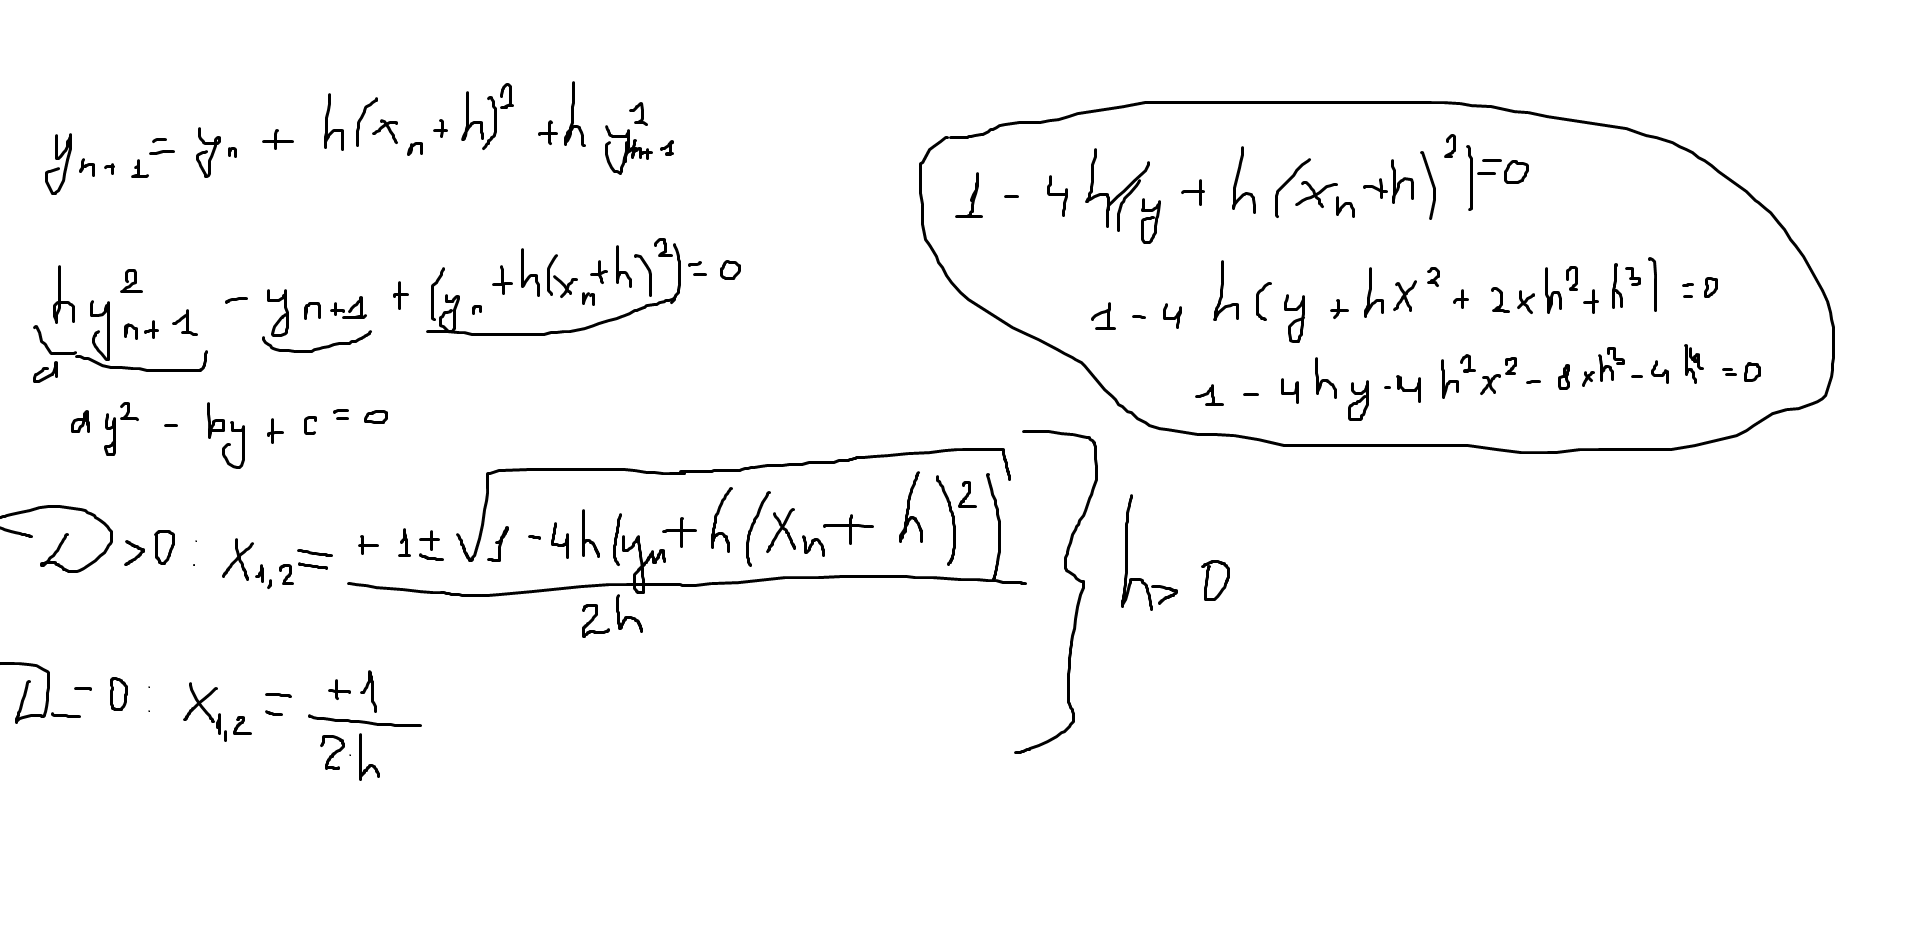 y_{n+1} = y_n + h(x_n + h)^2 + h y_{n+1}^2
h y_{n+1}^2 - y_{n+1} + (y_n + h(x_n + h)^2) = 0
a
ay^2 - by + c = 0
D > 0: x_{1,2} = (+1 ± √(1 - 4h(y_n + h(x_n + h)^2))) / 2h
D = 0: x_{1,2} = +1 / 2h
} h > 0
1 - 4h(y + h(x_n + h)^2) = 0
1 - 4h(y + hx^2 + 2xh^2 + h^3) = 0
1 - 4hy - 4h^2x^2 - 8xh^3 - 4h^4 = 0